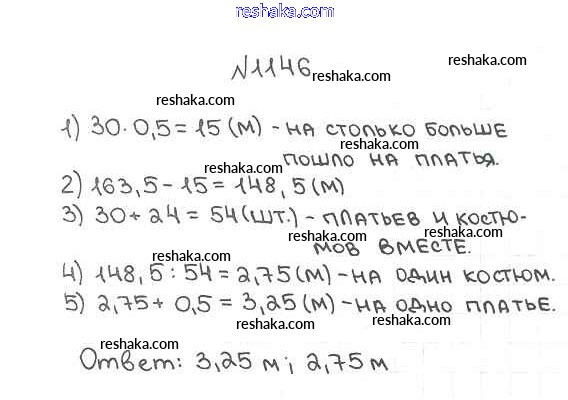 reshaka.com
№1146
reshaka.com
reshaka.com
1) 30·0,5=15(м) - на столько больше
reshaka.com
пошло на платья.
reshaka.com
2) 163,5-15=148,5(м)
reshaka.com
3) 30+24=54(шт.) - платьев и костю-
reshaka.com reshaka.com
мов вместе.
reshaka.com
4) 148,5:54=2,75(м) - на один костюм.
reshaka.com
5) 2,75+0,5=3,25(м) - на одно платье.
reshaka.com reshaka.com
reshaka.com
Ответ: 3,25 м; 2,75 м